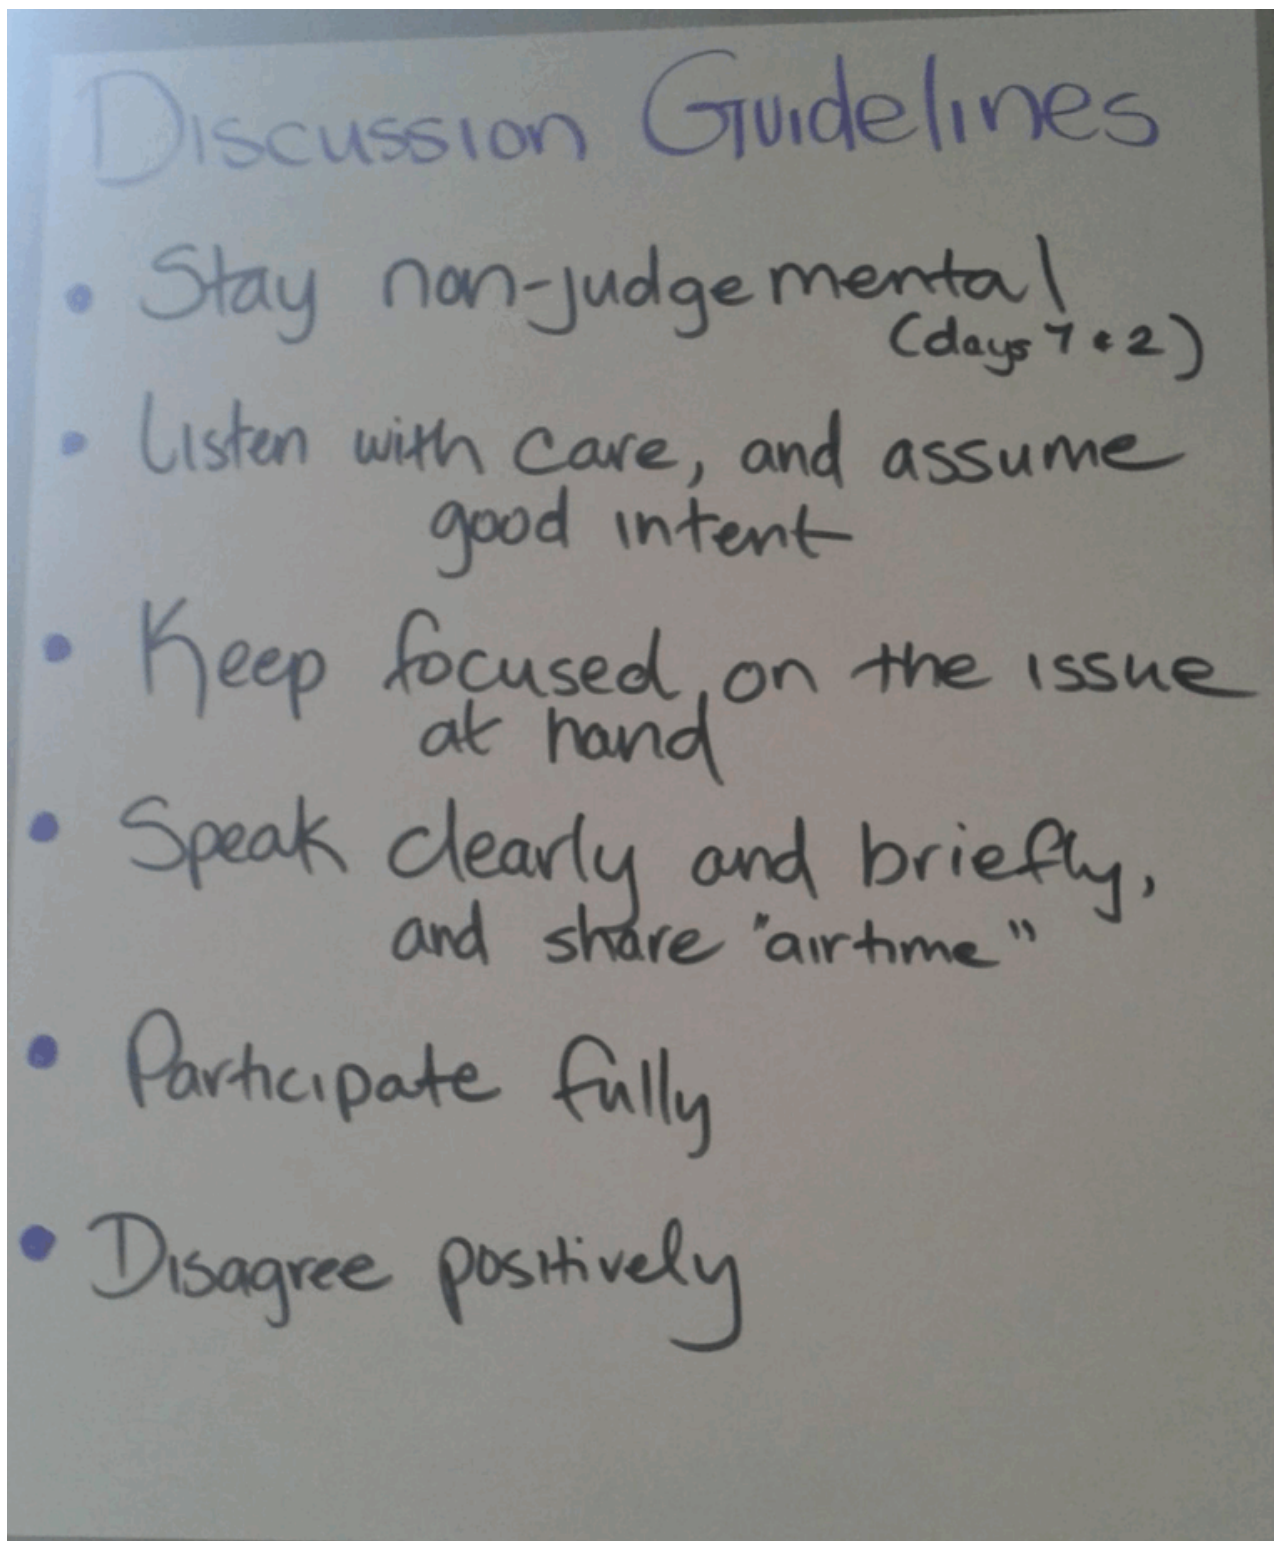 Discussion Guidelines
• Stay non-judgemental
(days 1 & 2)
• Listen with care, and assume
good intent
• Keep focused on the issue
at hand
• Speak clearly and briefly,
and share "airtime"
• Participate fully
• Disagree positively